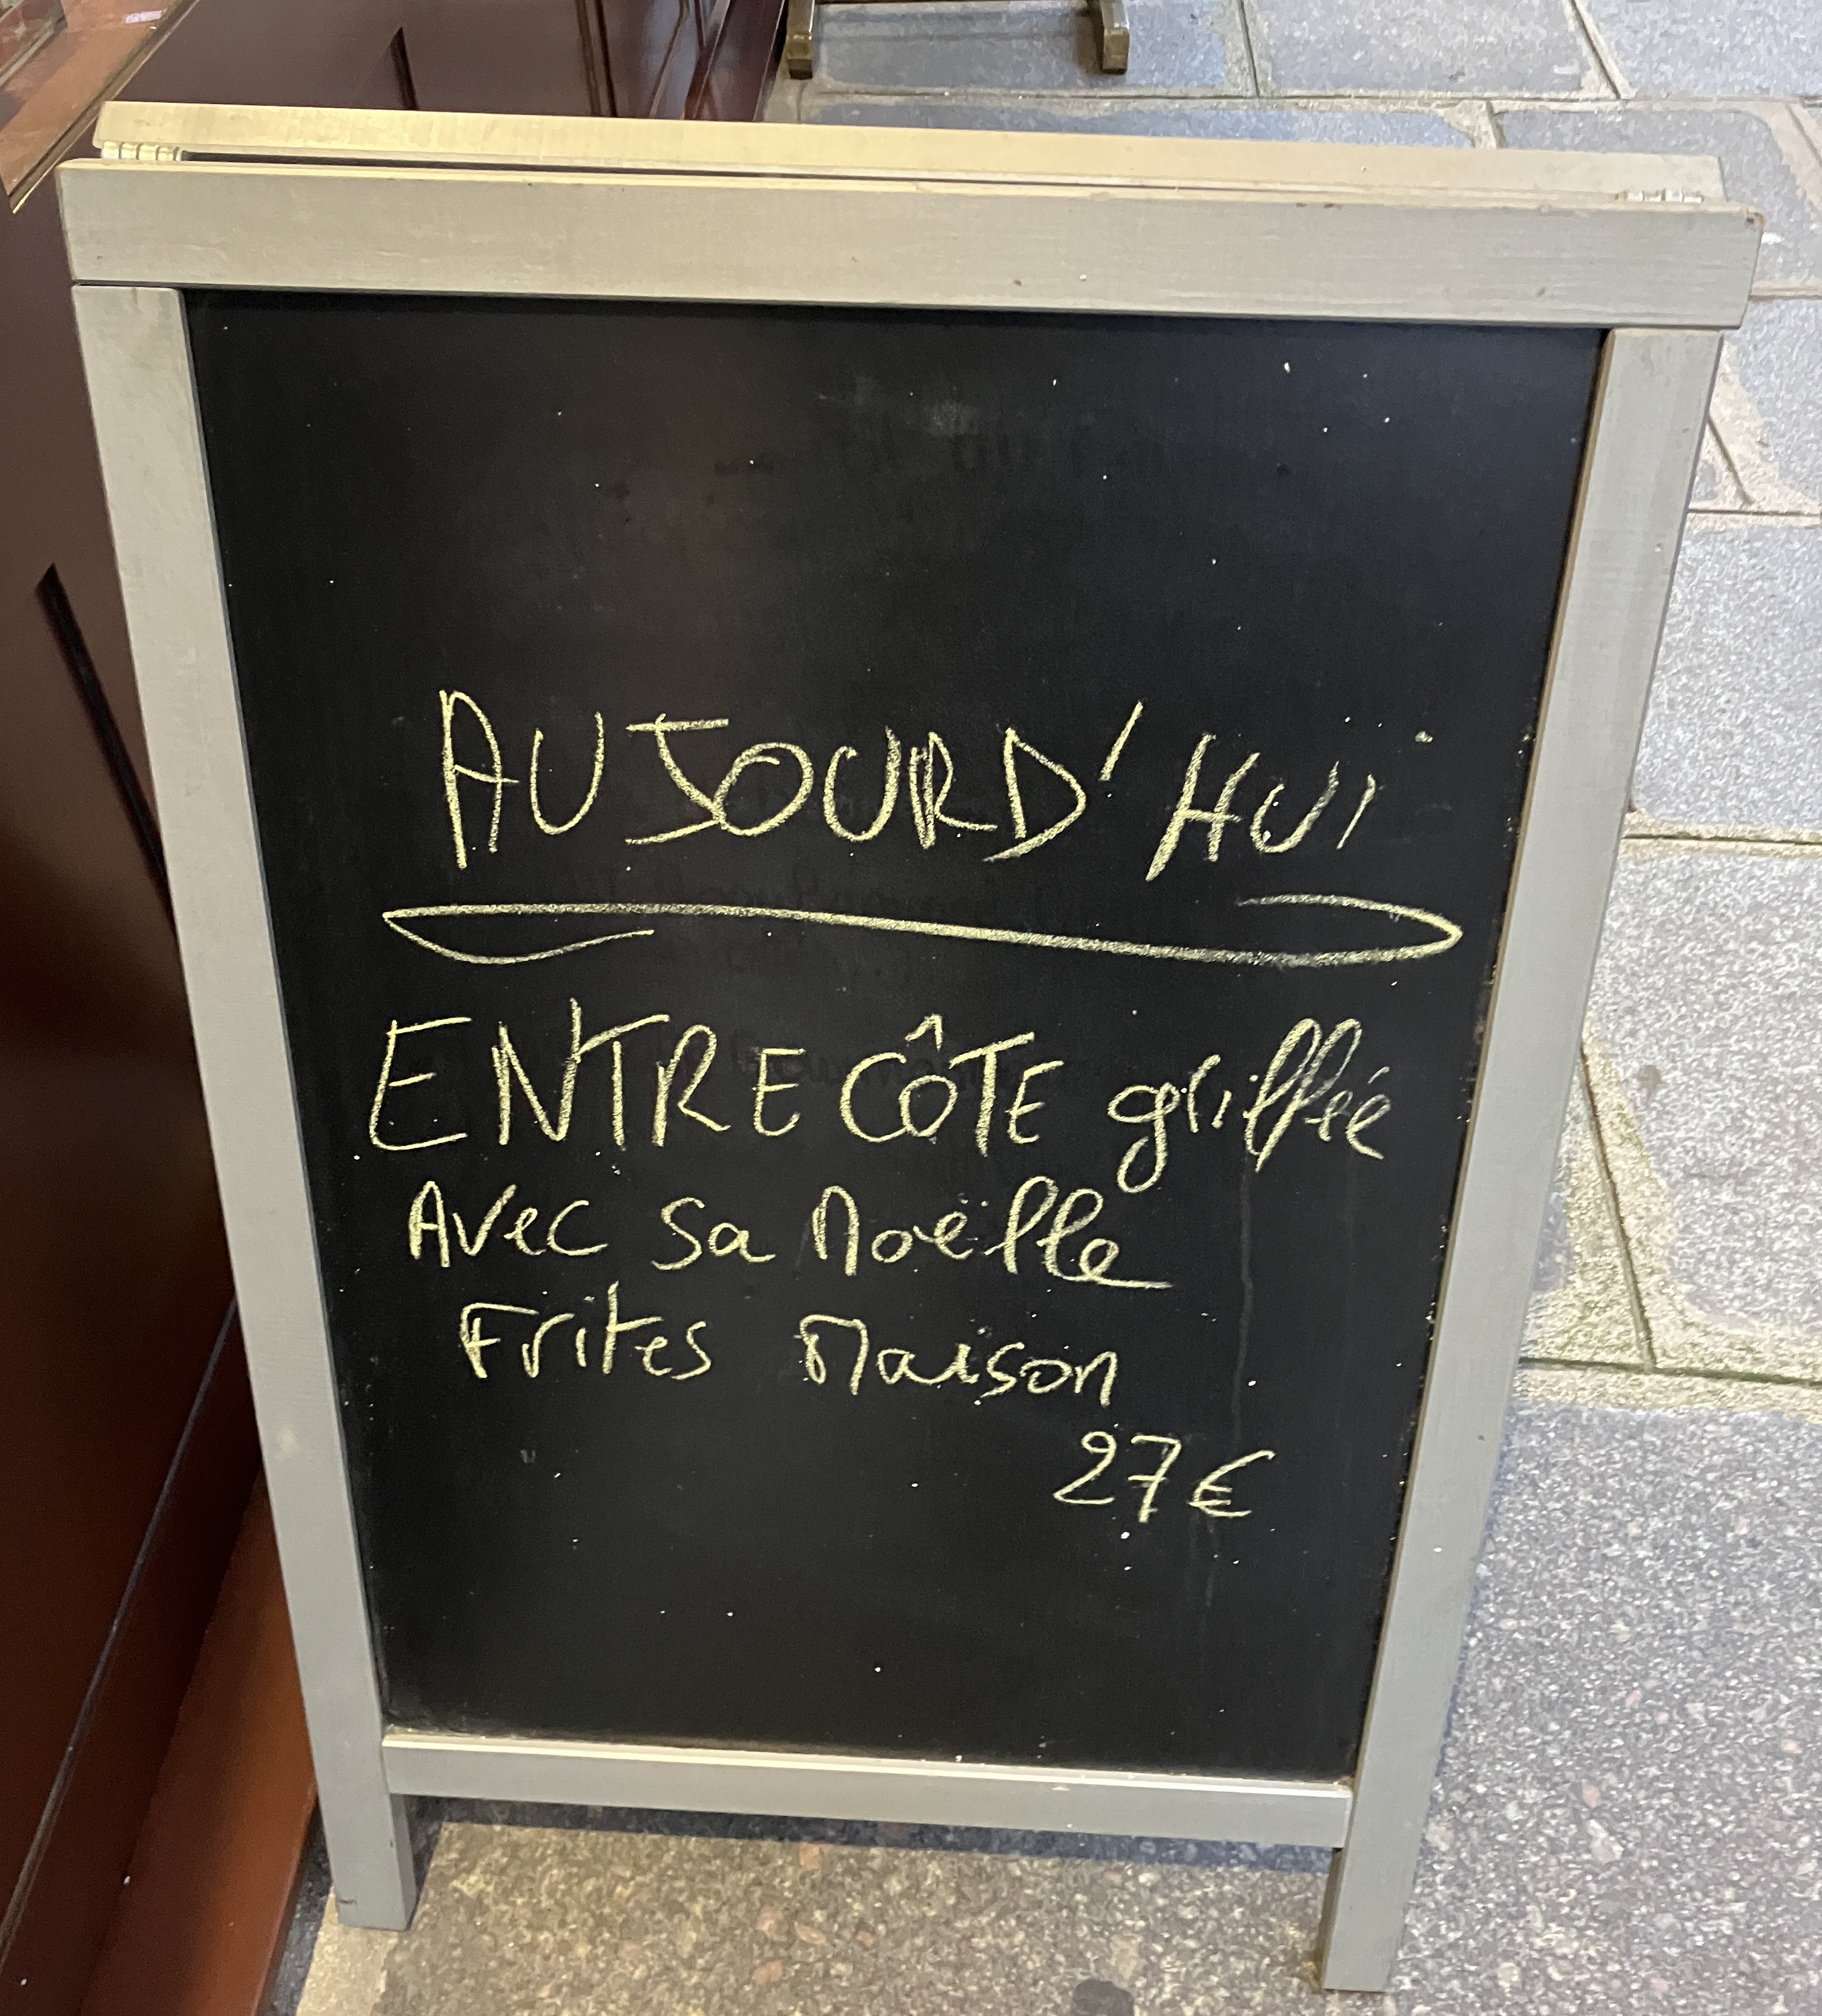 AUJOURD'HUI
ENTRECÔTE grillée
Avec sa Moëlle
Frites Maison
27€